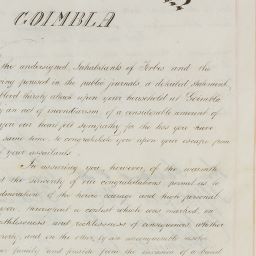 GOIMBLA
the undersigned Inhabitants of Forbes and the
ving perused in the public journals a detailed statement,
blood thirsty attack upon your household at Goimbla
by an act of incendiarism, of a considerable amount of
you our heart felt sympathy for the loss you have
same time to congratulate you upon your escape from
your assailants.
In assuring you, however, of the warmth
and the sincerity of our congratulations permit us to
admiration of the heroic courage and high personal
you throughout a contest which was marked on
ruthlessness and recklessness of consequences, whether
and on the other by an unconquerable
family and fireside from the invasion of a band